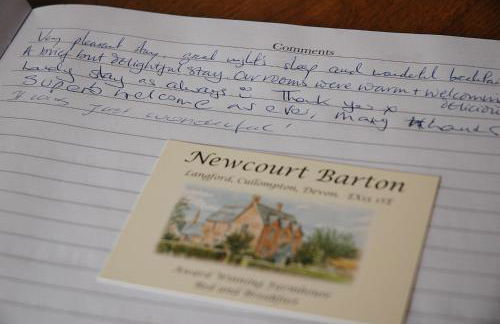 Comments
Very pleasant stay, great night's sleep and wonderful breakfa
A brief but Delightful stay. Our rooms were warm & welcoming
delicious
Lovely stay as always Thank you x
Superb welcome as ever, many thank
It was just wonderful!
Newcourt Barton
Langford, Cullompton, Devon. EX15 1SE
Award Winning Farmhouse
Bed and Breakfast